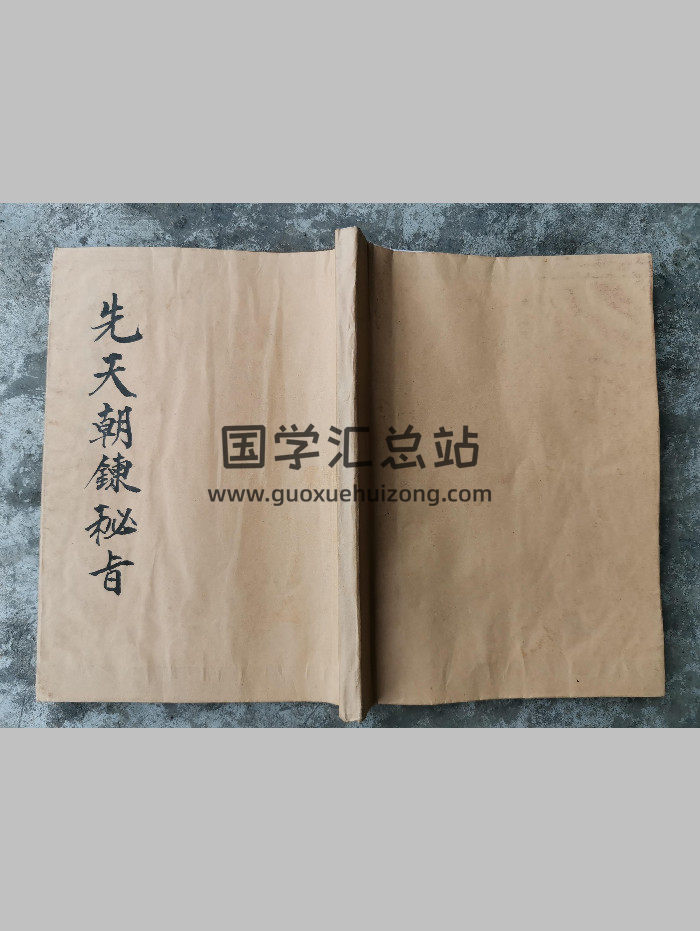 先天朝鍊秘旨
国学汇总站
www.guoxuehuizong.com